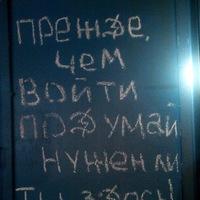 ПРЕЖДЕ,
ЧЕМ
ВОЙТИ
ПОДУМАЙ
НУЖЕН ЛИ
ТЫ ЗДЕСЬ!